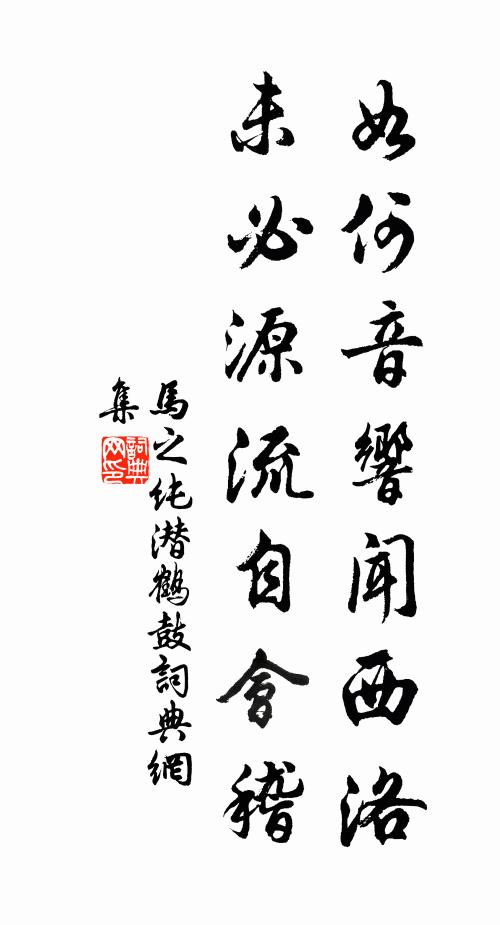 如何音響聞西洛
未必源流自會稽
馬之純潜鶴鼓詞典網
集
詞典網印